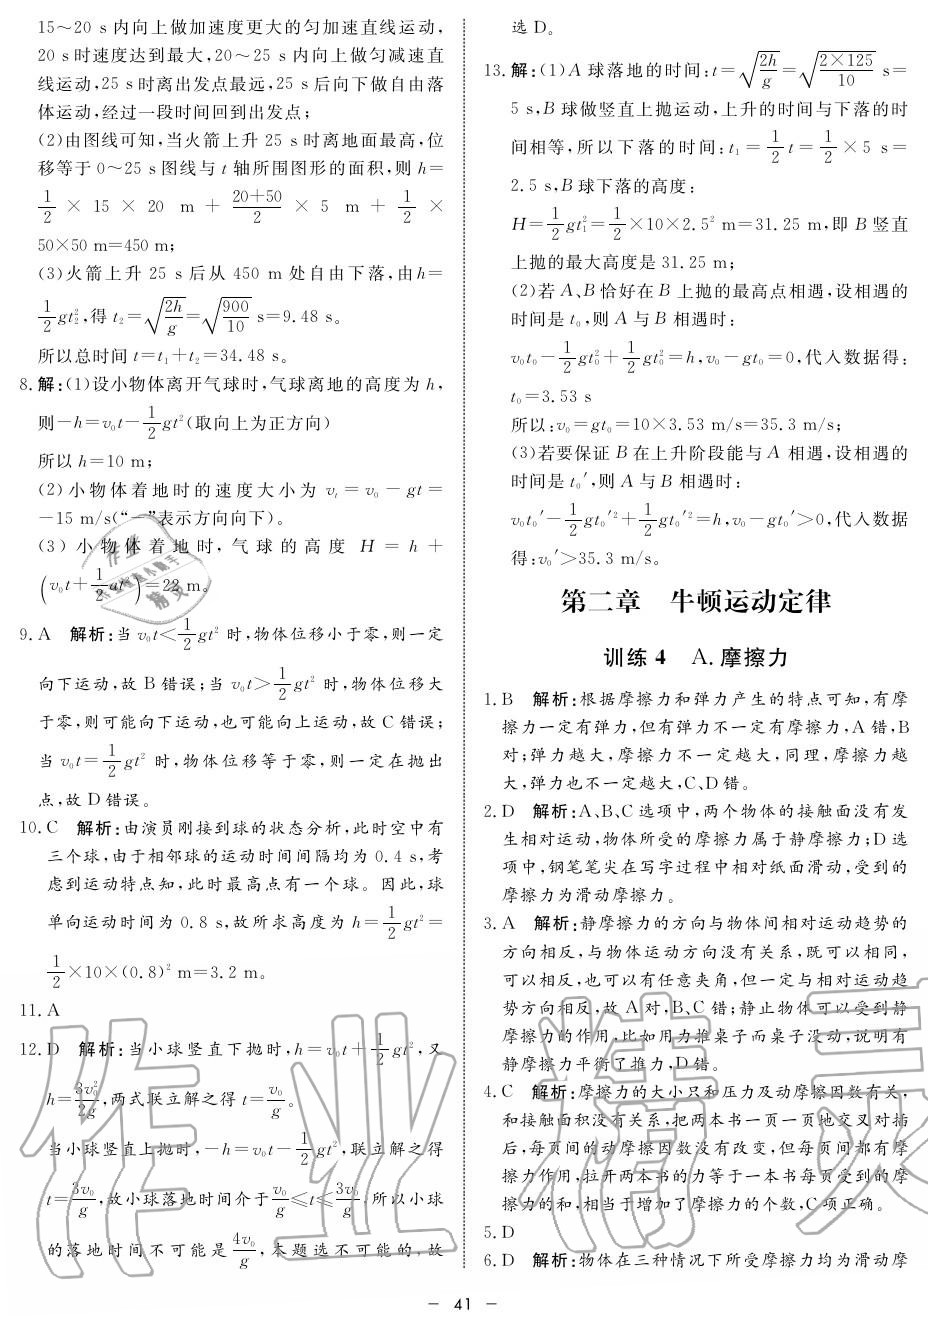 15～20 s内向上做加速度更大的匀加速直线运动,
20 s时速度达到最大,20～25 s内向上做匀减速直
线运动,25 s时离出发点最远,25 s后向下做自由落
体运动,经过一段时间回到出发点;
(2)由图线可知,当火箭上升 25 s时离地面最高,位
移等于 0～25 s图线与 t 轴所围图形的面积,则 h=
1/2 × 15 × 20 m + (20+50)/2 × 5 m + 1/2 ×
50×50 m=450 m;
(3)火箭上升 25 s 后从 450 m 处自由下落,由h=
1/2 gt₂²,得 t₂=√(2h/g)=√(900/10) s=9.48 s。
所以总时间 t=t₁+t₂=34.48 s。
8.解:(1)设小物体离开气球时,气球离地的高度为 h,
则-h=v₀t-1/2 gt²(取向上为正方向)
所以 h=10 m;
(2)小物体着地时的速度大小为 vₜ=v₀-gt=
-15 m/s(“-”表示方向向下)。
(3)小物体着地时,气球的高度 H=h+
(v₀t+1/2 at²)=22 m。
9.A 解析:当 v₀t<1/2 gt² 时,物体位移小于零,则一定
向下运动,故 B 错误;当 v₀t>1/2 gt² 时,物体位移大
于零,则可能向下运动,也可能向上运动,故 C 错误;
当 v₀t=1/2 gt² 时,物体位移等于零,则一定在抛出
点,故 D 错误。
10.C 解析:由演员刚接到球的状态分析,此时空中有
三个球,由于相邻球的运动时间间隔均为 0.4 s,考
虑到运动特点知,此时最高点有一个球。因此,球
单向运动时间为 0.8 s,故所求高度为 h=1/2 gt²=
1/2×10×(0.8)² m=3.2 m。
11.A
12.D 解析:当小球竖直下抛时,h=v₀t+1/2 gt²,又
h=3v₀²/2g,两式联立解之得 t=v₀/g。
当小球竖直上抛时,-h=v₀t-1/2 gt²,联立解之得
t=3v₀/g,故小球落地时间介于 v₀/g≤t≤3v₀/g,所以小球
的落地时间不可能是 4v₀/g,本题选不可能的,故
选 D。
13.解:(1)A 球落地的时间:t=√(2h/g)=√(2×125/10) s=
5 s,B 球做竖直上抛运动,上升的时间与下落的时
间相等,所以下落的时间:t₁=1/2 t=1/2×5 s=
2.5 s,B 球下落的高度:
H=1/2 gt₁²=1/2×10×2.5² m=31.25 m,即 B 竖直
上抛的最大高度是 31.25 m;
(2)若 A、B 恰好在 B 上抛的最高点相遇,设相遇的
时间是 t₀,则 A 与 B 相遇时:
v₀t₀-1/2 gt₀²+1/2 gt₀²=h,v₀-gt₀=0,代入数据得:
t₀=3.53 s
所以:v₀=gt₀=10×3.53 m/s=35.3 m/s;
(3)若要保证 B 在上升阶段能与 A 相遇,设相遇的
时间是 t₀′,则 A 与 B 相遇时:
v₀t₀′-1/2 gt₀′²+1/2 gt₀′²=h,v₀-gt₀′>0,代入数据
得:v₀′>35.3 m/s。
第二章 牛顿运动定律
训练 4 A.摩擦力
1.B 解析:根据摩擦力和弹力产生的特点可知,有摩
擦力一定有弹力,但有弹力不一定有摩擦力,A 错,B
对;弹力越大,摩擦力不一定越大,同理,摩擦力越
大,弹力也不一定越大,C、D 错。
2.D 解析:A、B、C 选项中,两个物体的接触面没有发
生相对运动,物体所受的摩擦力属于静摩擦力;D 选
项中,钢笔笔尖在写字过程中相对纸面滑动,受到的
摩擦力为滑动摩擦力。
3.A 解析:静摩擦力的方向与物体间相对运动趋势的
方向相反,与物体运动方向没有关系,既可以相同,
可以相反,也可以有任意夹角,但一定与相对运动趋
势方向相反,故 A 对,B、C 错;静止物体可以受到静
摩擦力的作用,比如用力推桌子而桌子没动,说明有
静摩擦力平衡了推力,D 错。
4.C 解析:摩擦力的大小只和压力及动摩擦因数有关,
和接触面积没有关系,把两本书一页一页地交叉对插
后,每页间的动摩擦因数没有改变,但每页间都有摩
擦力作用,拉开两本书的力等于一本书每页受到的摩
擦力的和,相当于增加了摩擦力的个数,C 项正确。
5.D
6.D 解析:物体在三种情况下所受摩擦力均为滑动摩
- 41 -